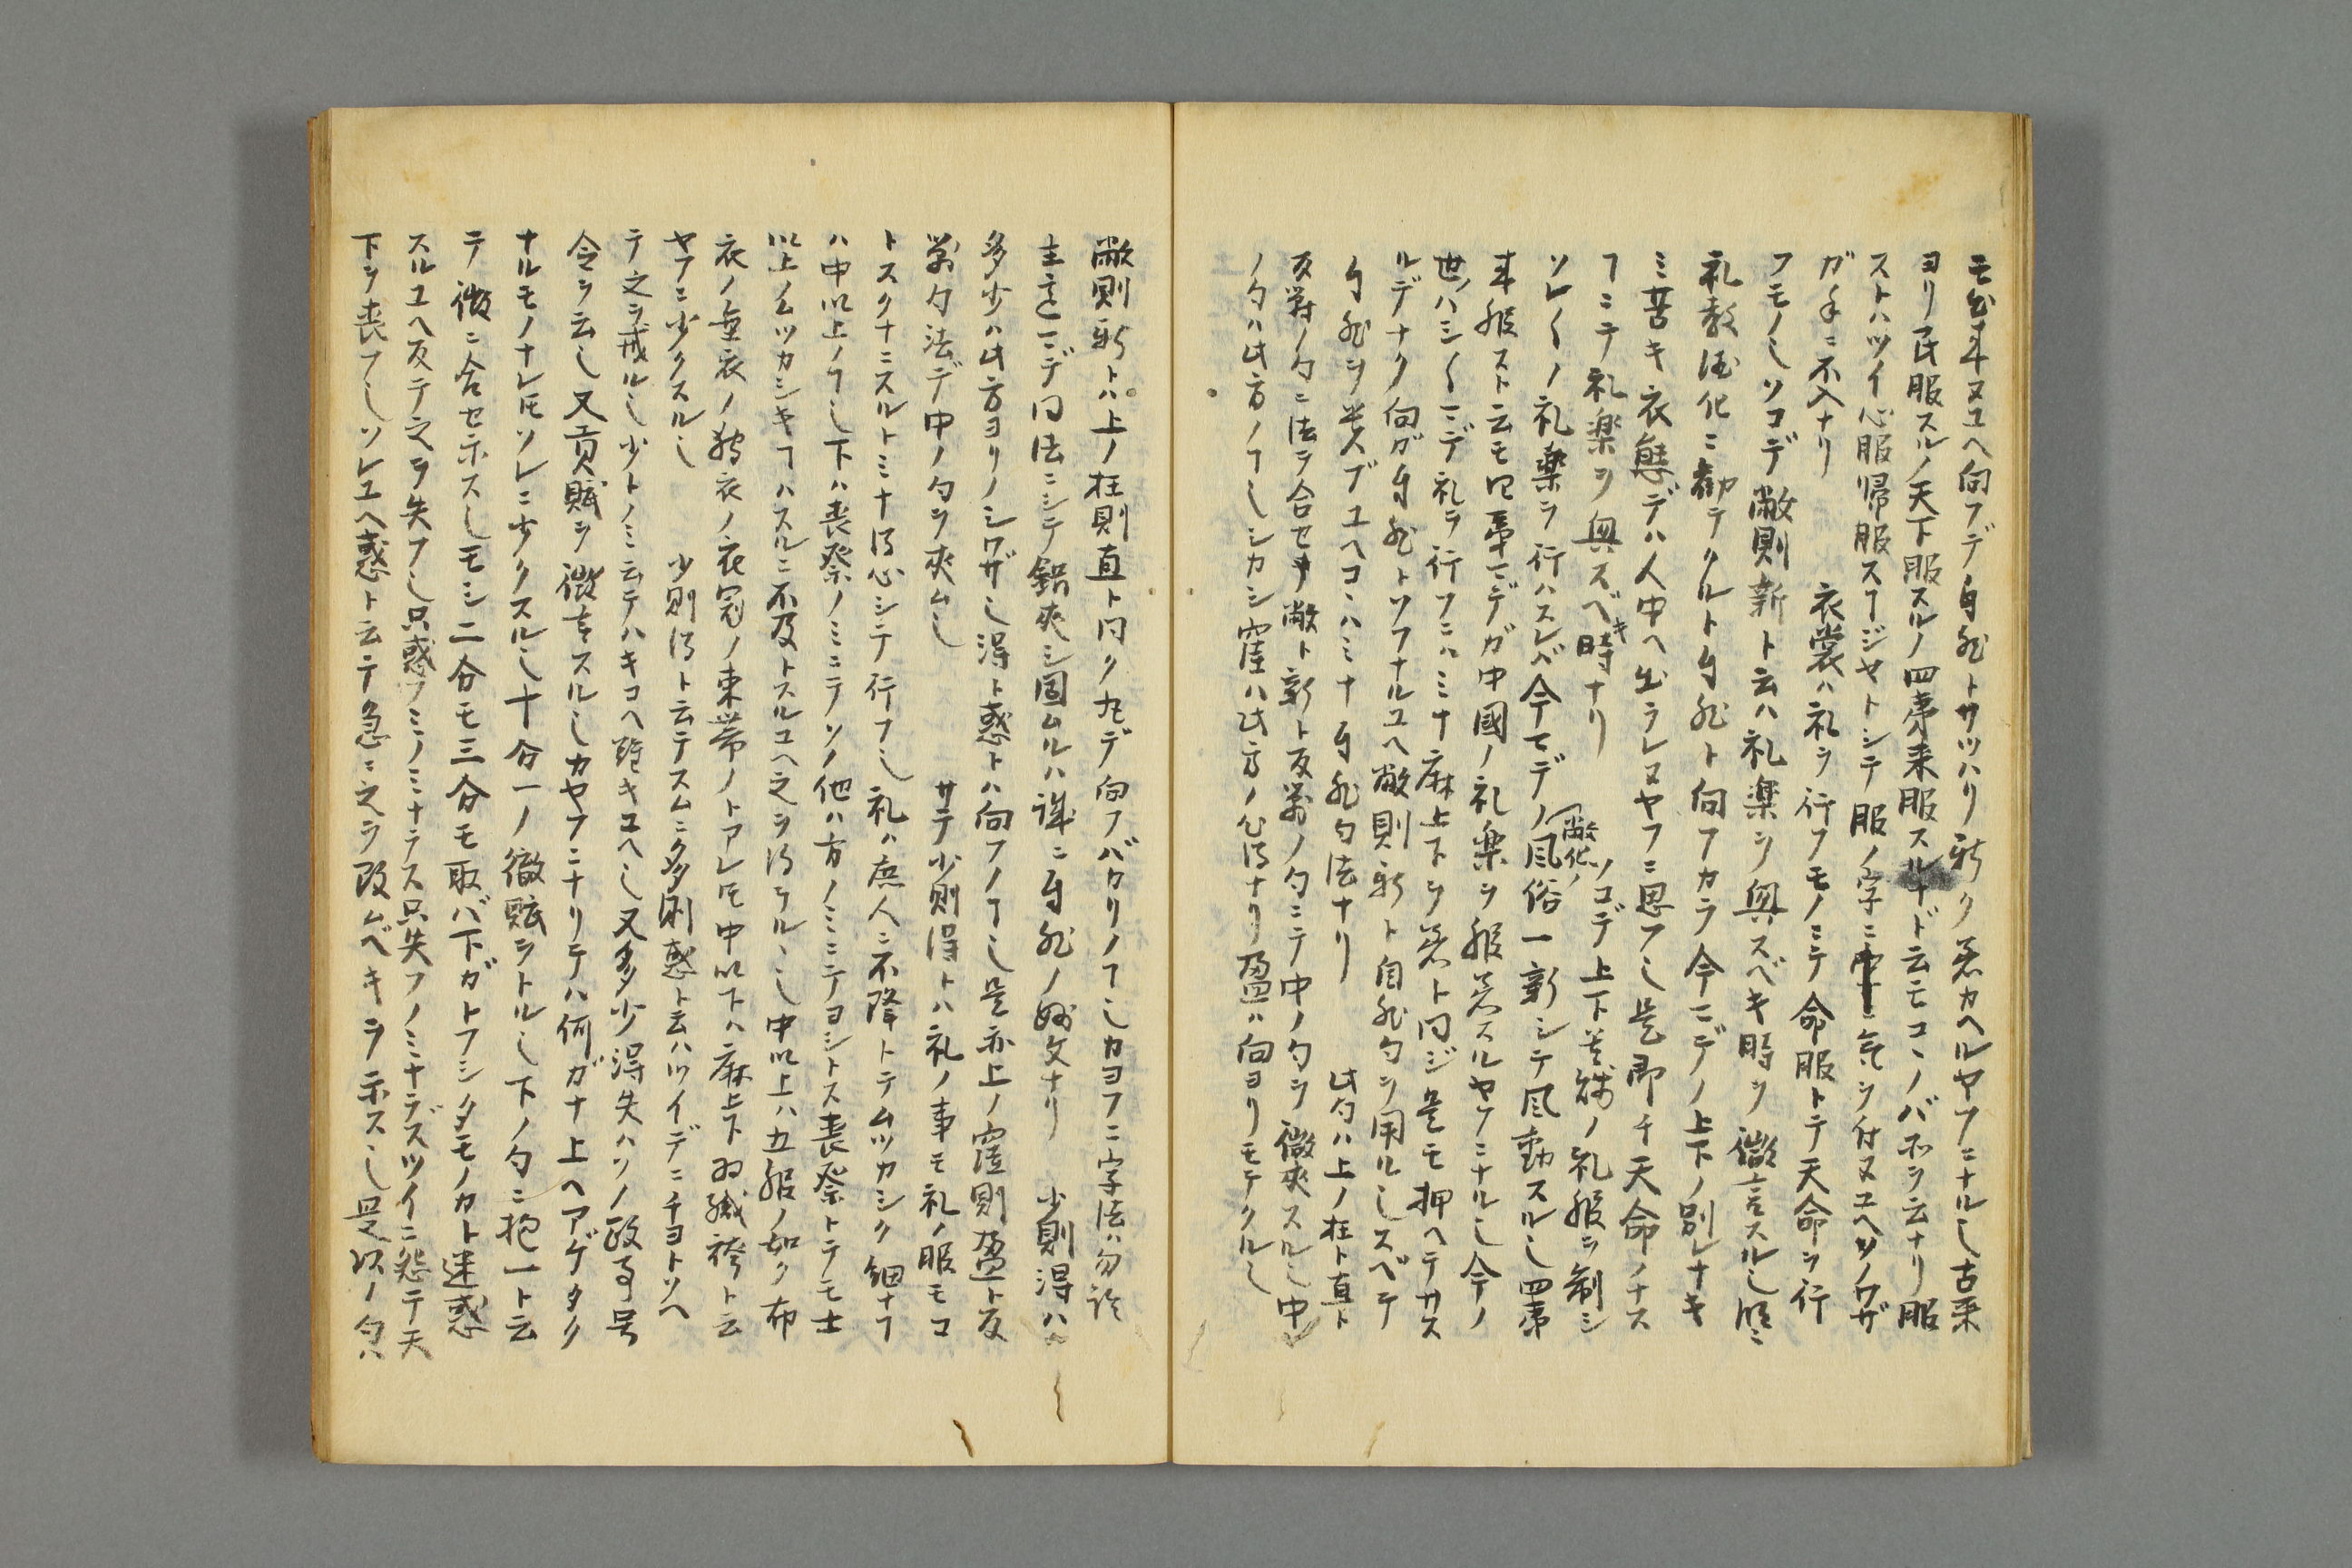 モ出来ヌユヘ向フデ自然トサツハリ新ク着カヘルヤフニナル乄古来
ヨリ民服スルノ天下服スルノ四夷来服スルナド云モコヽノバ不ヲ云ナリ服
ストハツイ心服帰服スヿジヤトシテ服ノ字ニ気ヲ付ヌユヘソノワザ
ガ手ニ不入ナリ　衣裳ハ礼ヲ行フモノニテ命服トテ天命ヲ行
フモノ乄ソコデ敝則新ト云ハ礼楽ヲ興スベキ時ヲ徴言スル乄
礼教徳化ニ勧テクルト自然ト向フカラ今マデノ上下ノ別レナキ
ミ苦キ衣態デハ人中ヘ出ラレヌヤフニ思フ乄是即チ天命ノナス
ヿニテ礼楽ヲ興スベキ時ナリ　ソコデ上下ノ礼服ヲ制シ
ソレ〱ノ礼楽ヲ行ハスレバ今マデノ敝化ノ風俗一新シテ風動スル乄四夷
来服スト云モ四夷マデガ中國ノ礼楽ヲ服着スルヤフニナル乄今ノ
世ノハシ〱マデ礼ヲ行フニハミナ麻上下ヲ着ト同ジ是モ押ヘテカス
ルデナク向ガ自然トソフナルユヘ敝則新ト自然勾ヲ用ル乄スベテ
自然ヲ学ブユヘコヽハミナ自然勾法ナリ　此勾ハ上ノ枉ト直ト
反對ノ勾ニ法ヲ合セ敝ト新ト反對ノ勾ニテ中ノ勾ヲ徴夾スル乄中
ノ勾ハ此方ノヿ乄シカシ窪ハ此方ノ心得ナリ盈ハ向ヨリモテクル乄
敝則新トハ上ノ枉則直ト同ク九デ向フバカリノヿ乄カヨフニ字法ハ勿論
主意マデ同法ニシテ鋁夾シ固ムルハ誠ニ自然ノ妙文ナリ　少則得ハ
多少ハ此方ヨリノシワザ乄得ト惑トハ向フノヿ乄是亦上ノ窪則盈ト反
對勾法デ中ノ勾ヲ夾ム乄　サテ少則得トハ礼ノ事モ礼ノ服モコ
トスクナニスルトミナ得心シテ行フ乄礼ハ庶人ニ不降トテムツカシク細ナヿ
ハ中以上ノヿ乄下ハ喪祭ノミニテソノ他ハ方ノミニテヨシトス喪祭トテモ士
以上ノムツカシキヿハスルニ不及トスルユヘ之ヲ得ラルヽ乄中以上ハ五服ノ如ク布
衣ノ無衣ノ狩衣ノ衣冠ノ束帯ノトアレ𪜈中以下ハ麻上下羽織袴ト云
ヤフニ少クスル乄　少則得ト云テスムニ多則惑ト云ハツイデニチヨトソヘ
テ之ヲ戒ル乄少トノミ云テハキコヘ難キユヘ乄又多少得失ハソノ政事号
令ヲ云乄又貢賦ヲ徴言スル乄カヤフニナリテハ何ガナ上ヘアゲタク
ナルモノナレ𪜈ソレニ少クスル乄十分一ノ徹賦ヲトル乄下ノ勾ニ抱一ト云
テ徴ニ合セ示ス乄モシ二分モ三分モ取バ下ガトフシタモノカト迷惑
スルユヘ反テ之ヲ失フ乄只惑フミノミナラス只失フノミナラズツイニ怨テ天
下ヲ喪フ乄ソレユヘ惑ト云テ急ニ之ヲ改ムベキヲ示ス乄是以ノ勾ハ